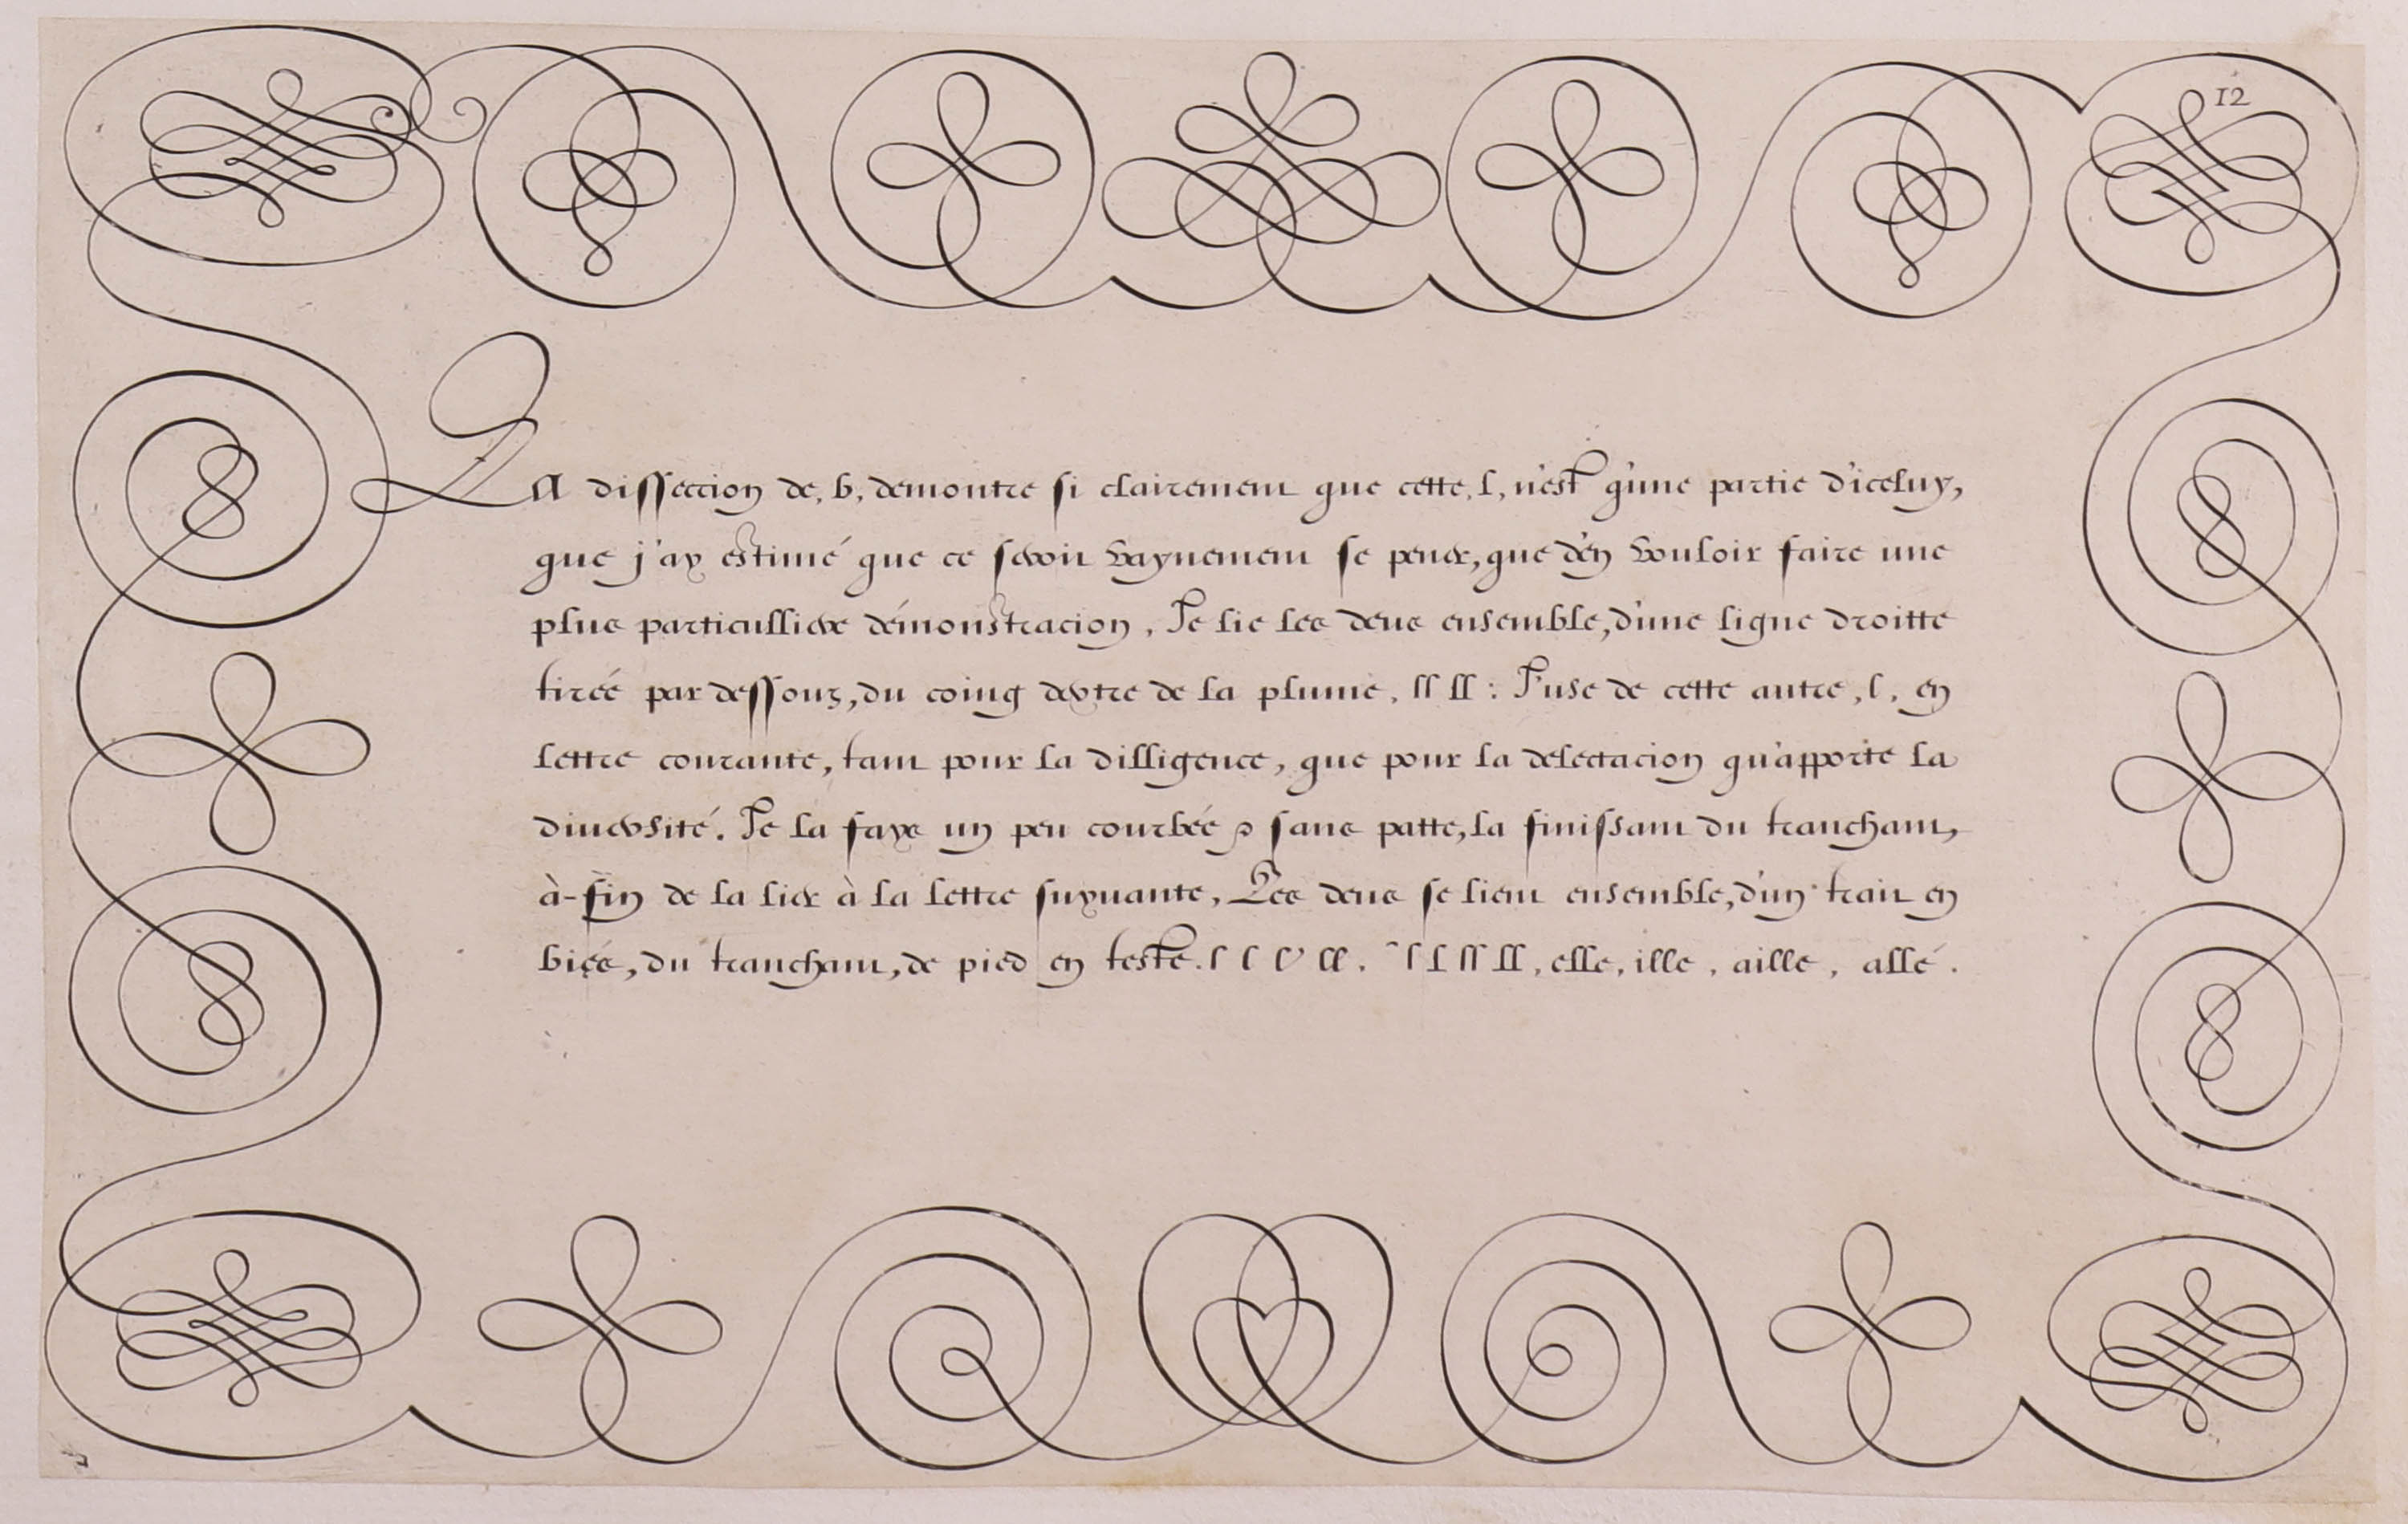 12
LA dissection de, b, demontre si clairement que cette, l, n'est q'une partie d'iceluy,
que j'ay estimé que ce seroit vaynement se pener, que d'en vouloir faire une
plus particulliere démonstracion. Je lie les deus ensemble, d'une ligne droitte
tirée par dessouz, du coing dextre de la plume, ll ll : J'use de cette autre, l, en
lettre courante, tant pour la dilligence, que pour la delectacion qu'apporte la
diuersité. Je la fays un peu courbée & sans patte, la finissant du tranchant,
à-fin de la lier à la lettre suyuante, Les deus se lient ensemble, d'un trait en
biés, du tranchant, de pied en teste. l l l ll. l l ll ll, elle, ille, aille, allé.